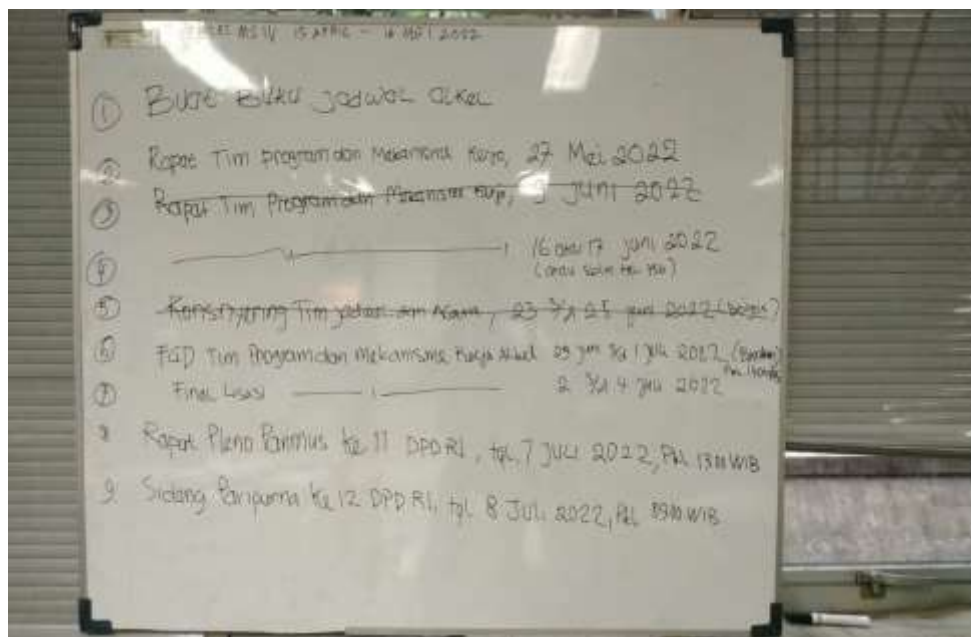 MS IV 15 APRIL - 16 MEI 2022
① Buat Buku Jadwal
② Rapat Tim Program dan Mekanisme Kerja, 27 Mei 2022
③ Rapat Tim Program dan Mekanisme Kerja, 3 Juni 2022
④ 16 atau 17 Juni 2022
⑤ Konsinyering Tim dan, 23 s/d 25 Juni 2022 (bogor)
⑥ FGD Tim Program dan Mekanisme Kerja 29 Juni s/d 1 Juli 2022
⑦ Finalisasi 2 s/d 4 Juli 2022
8 Rapat Pleno Panmus ke 11 DPD RI, tgl, 7 Juli 2022, Pkl 13.00 WIB
9. Sidang Paripurna ke 12 DPD RI, tgl 8 Juli 2022, Pkl 09.00 WIB